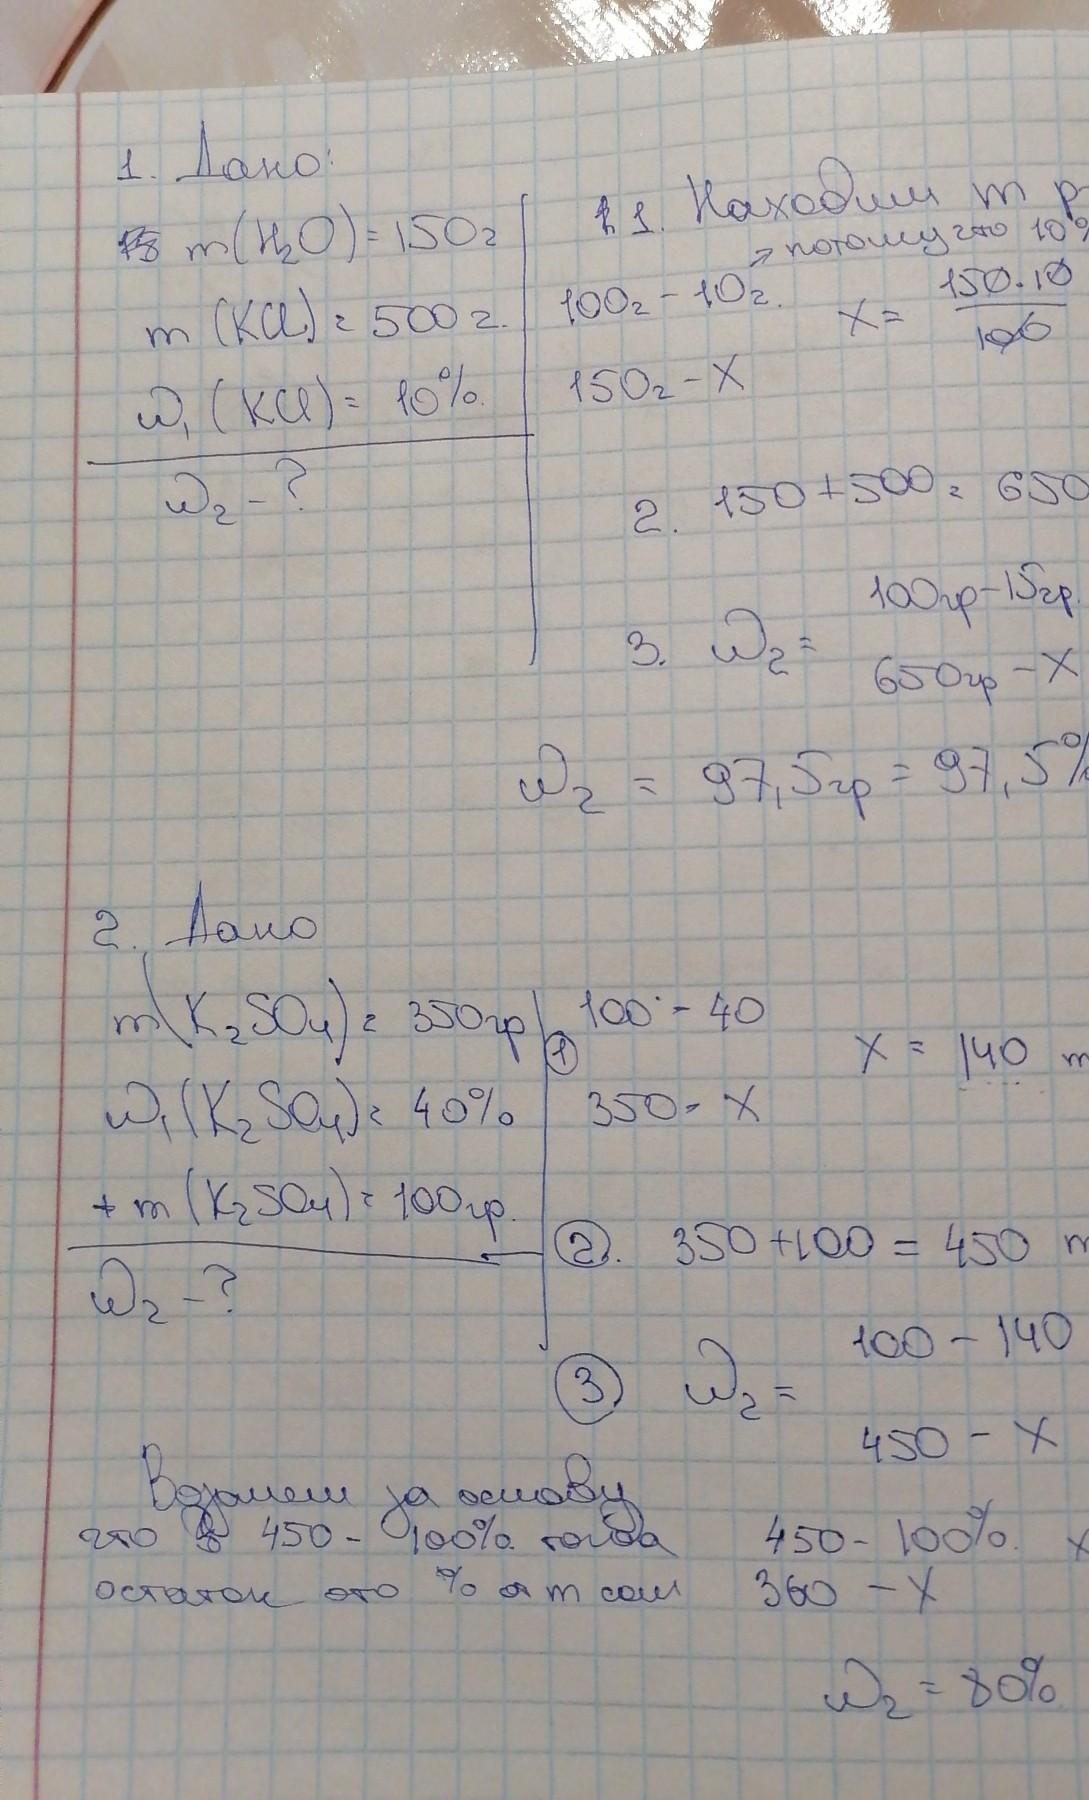 1. Дано:
m(H₂O)=150г
m(KCl)=500г.
ω₁(KCl)=10%.
ω₂-?
1. Находим m р
потому что 10%
100г-10г. x=150·10/100
150г-x
2. 150+500=650
3. ω₂= 100гр-15гр.
650гр-x
ω₂=97,5гр=97,5%
2. Дано
m(K₂SO₄)=350гр
ω₁(K₂SO₄)=40%
+m(K₂SO₄)=100гр.
ω₂-?
① 100-40
350-x
x=140 m
②. 350+100=450 m
③ ω₂= 100-140
450-x
Возьмем за основу
что 450-100% тогда
остаток это % от m соли
450-100%. x
360-x
ω₂=80%